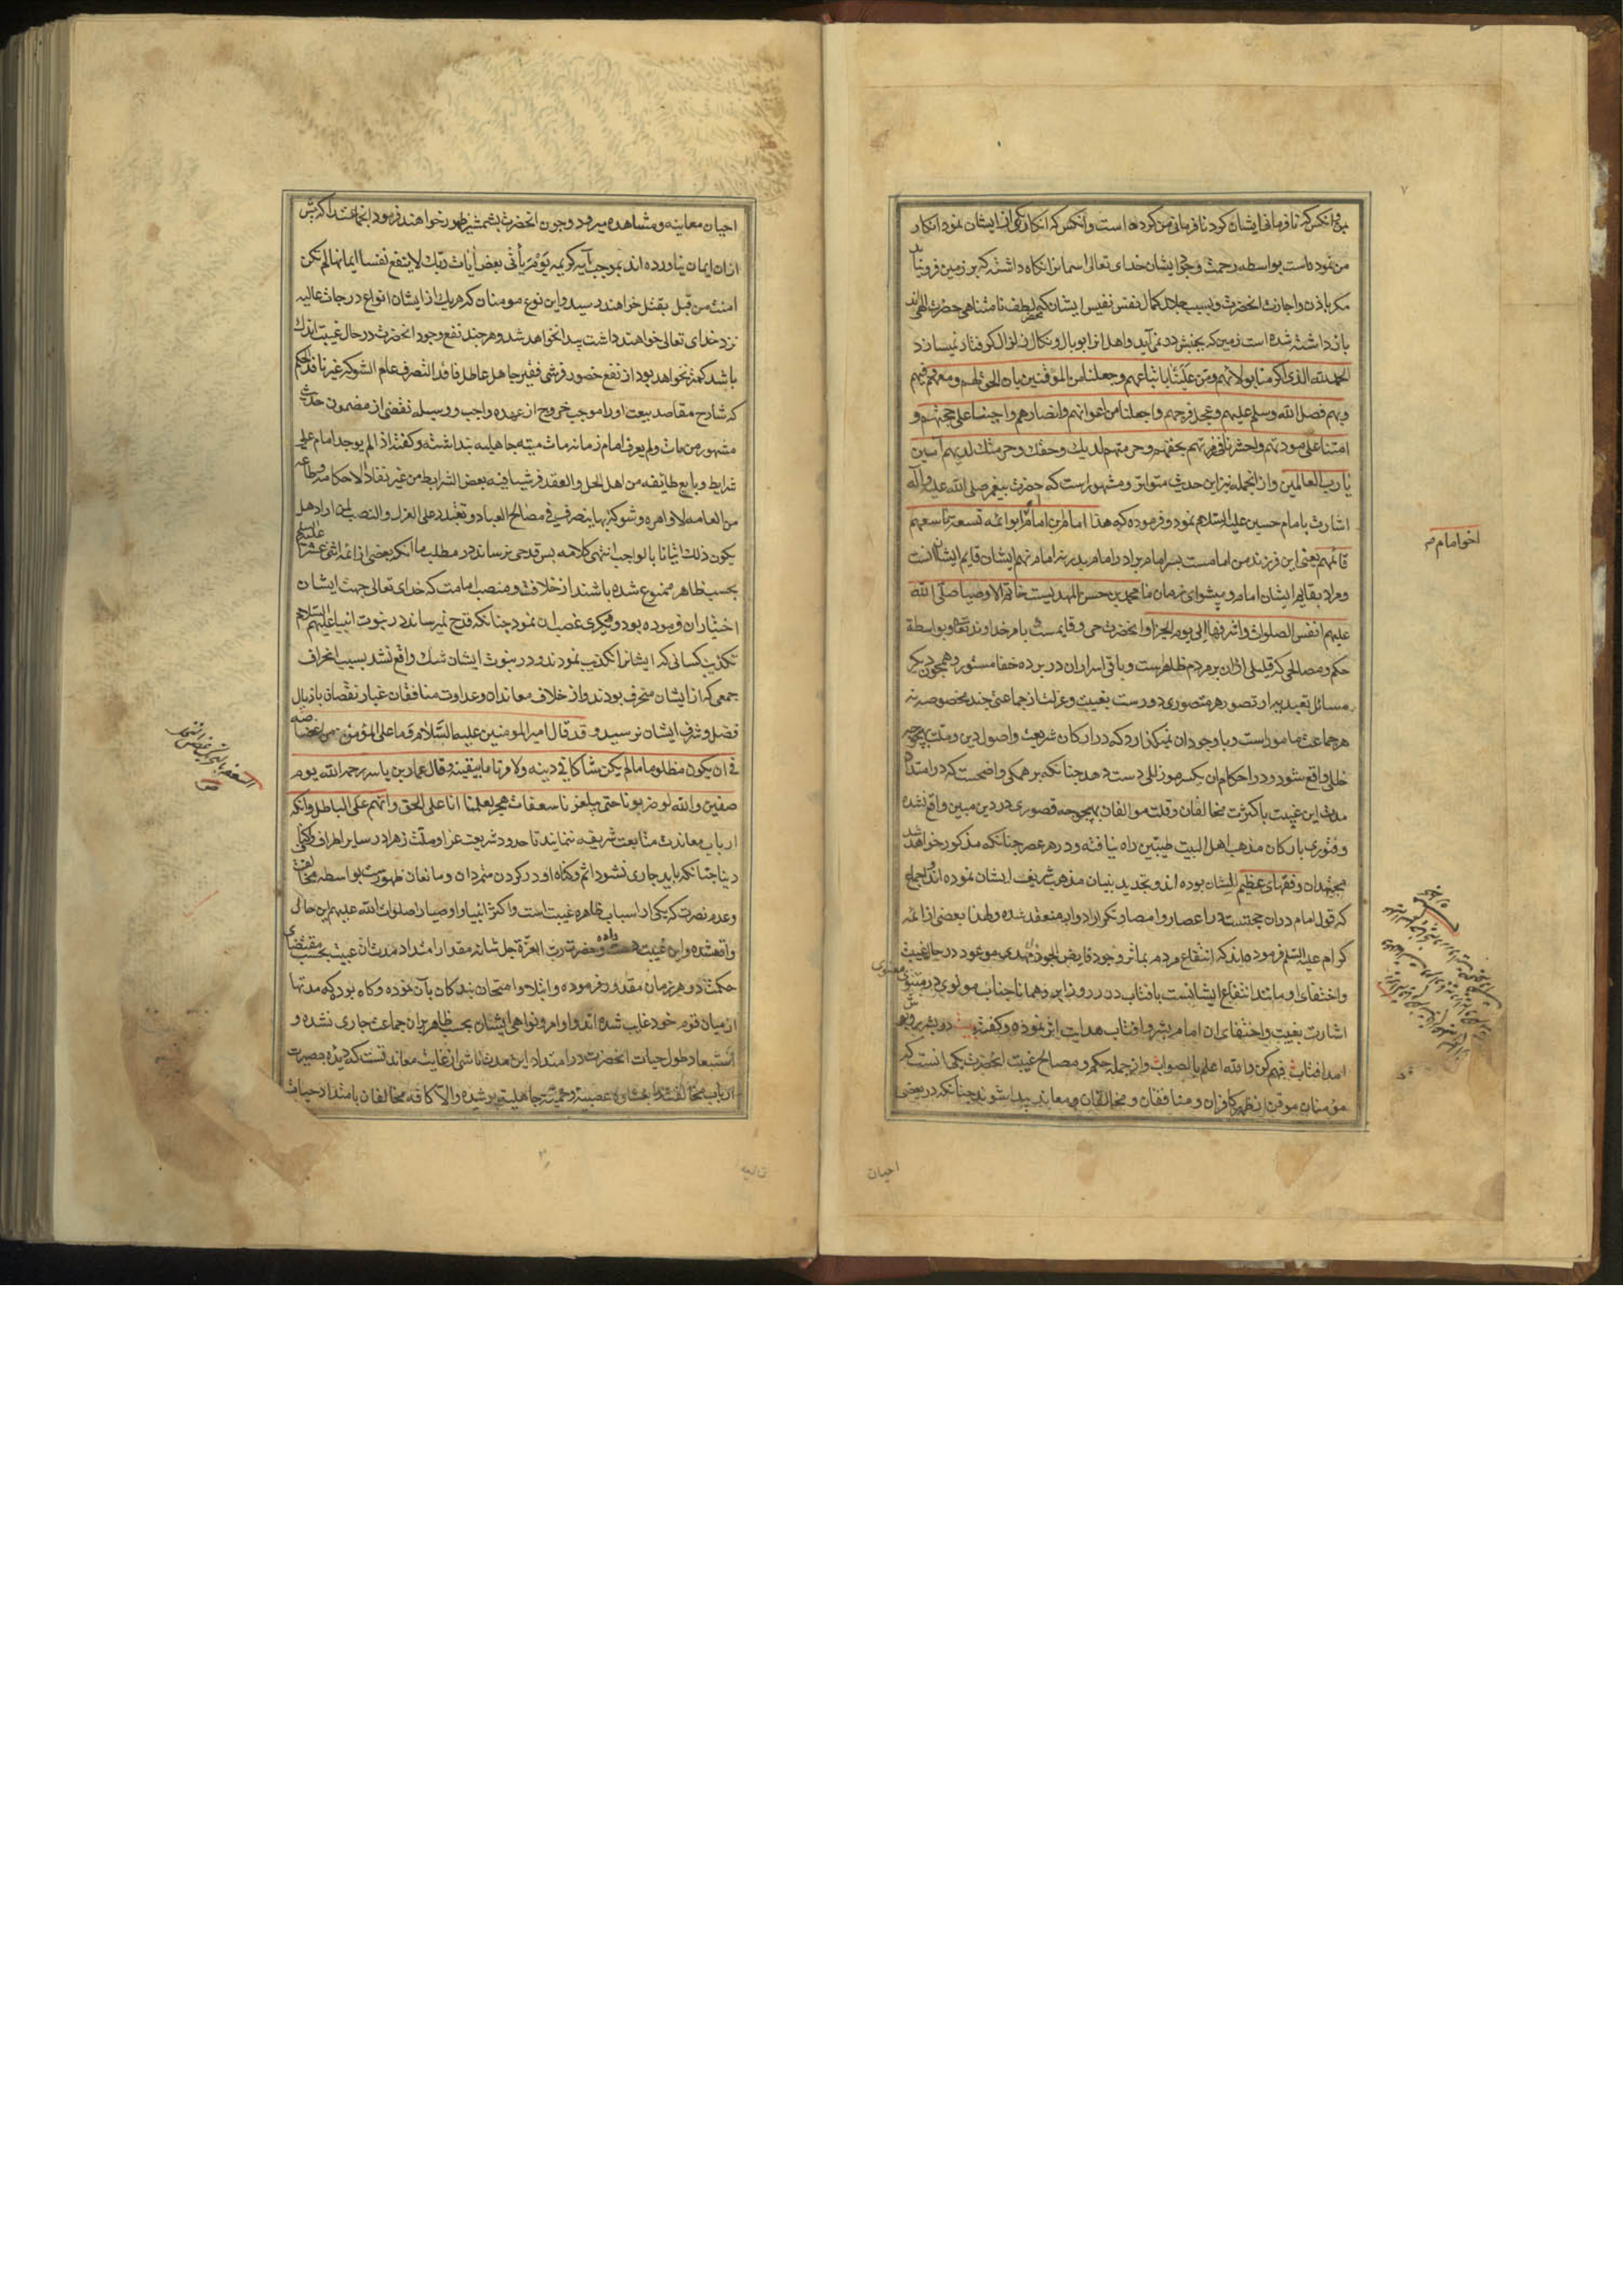 من نموده است بواسطه رحمت وجود ایشان خدای تعالی اسمانرا نکاه داشته که بر زمین فرو نیاید
مکر باذن واجازت انحضرت وبسبب جلال کمال نفس نفیس ایشان که لطف نامتناهی حضرت الهی اند
باز داشته شده است زمین که بجنبش در نمی آید واهل انرا بوبال ونکال زلزال کرفتار نمیسازد
الحمد لله الذی اکرمنا بولائهم ومن علینا باتباعهم وجعلنا من الموقنین بان الحق لهم ومعهم وفیهم
وبهم فصل الله وسلم علیهم وعجل فرجهم واجعلنا من اعوانهم وانصارهم واحینا علی محبتهم و
امتنا علی مودتهم واحشرنا فی زمرتهم بحقهم وحرمتهم لدیک وحقک وحرمتک لدیهم آمین
یا رب العالمین وازانجمله نیز این حدیث متواتر ومشهور است که حضرت پیغمبر صلی الله علیه وآله
اشارت بامام حسین علیه السلام نمود و فرموده که هذا امام ابن امام ابو ائمه تسعة تاسعهم
قائمهم یعنی این فرزند من امامست پسر امام برادر امام پدر نه امام نهم ایشان قایم ایشانست
ومراد بقایم ایشان امام وپیشوای زمان ما محمد بن حسن المهدیست خاتم الاوصیا صلی الله
علیهم انفس الصلوات واشرفها الی یوم الجزا وانحضرت حی وقایمست بامر خداوند تعالی وبواسطة
حکم ومصالحی که قلیلی ازان بر مردم ظاهرست وباقی اسرار ان در پرده خفا مستور وهمچون دیکر
مسائل تعبدیه از تصور هر متصوری دورست بغیبت وعزلت از جماعتی چند مخصوصه نه
هر جماعت مامور است وبا وجود ان نمیکذارد که در ارکان شریعت واصول دین وملت بهیچوجه
خللی واقع شود ودر احکام ان یکسر مو زللی دست دهد چنانکه بر همکی واضحست که در امتداد
مدت این غیبت با کثرت مخالفان وقلت موالفان بهیچوجه قصوری در دین مبین واقع نشده
وفتوری بارکان مذهب اهل البیت طیبین راه نیافته ودر هر عصر چنانکه مذکور خواهد شد
مجتهدان وفقهای عظیم الشان بوده اند وتجدید بنیان مذهب شریف ایشان نموده اند واجماع
که قول امام دران حجتست در اعصار وامصار
کرام علیه السلم فرموده اند که انتفاع مردم بماثر وجود فایض الجود مهدی موعود در حال غیبت
واختفای او مانند انتفاع ایشانست بافتاب در روز ابر وهمانا جناب مولوی در مثنوی معنوی
اشارت بغیبت واختفای ان امام بشر وافتاب هدایت اثر نموده وکفته بیت در بشر روپوش
امد افتاب فهم کن والله اعلم بالصواب وازجمله حکم ومصالح غیبت انحضرت یکی انست که
مؤمنان موقن از ظهر کافران ومنافقان ومخالفان ومعاندان پیدا شوند چنانکه در بعضی
احیان
اخو امام
احیان معاینه ومشاهده میرود وچون انحضرت بشمشیر ظهور خواهند فرمود انجماعت را که پیش
ازان ایمان نیاورده اند بموجب آیه کریمه یوم یأتی بعض آیات ربک لا ینفع نفسا ایمانها لم تکن
امنت من قبل بقتل خواهند رسید واین نوع مومنان که هریک از ایشان انواع درجات عالیه
نزد خدای تعالی خواهند داشت پیدا نخواهد شد وهرچند نفع وجود انحضرت در حال غیبت اندک
باشد کمتر نخواهد بود از نفع حضور قرشی فقیر جاهل عاطل فاقد التصرف عادم الشوکه غیر نافذ الحکم
که شارح مقاصد بیعت او را موجب خروج از عهده واجب ووسیله تفصی از مضمون حدیث
مشهور من مات ولم یعرف امام زمانه مات میته جاهلیه پنداشته وکفته اذا لم یوجد امام علی
شرایط وبایع طائفه من اهل الحل والعقد قرشیا فیه بعض الشرایط من غیر نفاذ لاحکامه وطاعه
من العامه لاوامره وشوکة بها یتصرف فی مصالح العباد ویقتدر علی العزل والنصب لمن اراد هل
یکون ذلک اتیانا بالواجب انتهی کلامه پس قدحی نرساند در مطلب ما آنکه بعضی از ائمه اثنی عشر علیهم السلم
بحسب ظاهر ممنوع شده باشند از خلافت ومنصب امامت که خدای تعالی جهت ایشان
اختیار ان فرموده بود ودیکری غصب ان نمود چنانکه قدح نمیرساند در نبوت انبیا علیهم السلام
تکذیب کسانی که ایشانرا تکذیب نمودند ودر نبوت ایشان شک واقع نشد بسبب انحراف
جمعی که از ایشان منحرف بودند واز خلاف معاندان وعداوت منافقان غبار نقصان باذیال
فضل وشرف ایشان نرسید وقد قال امیر المومنین علیه السلام وما علی المؤمن من غضاضة
فی ان یکون مظلوما ما لم یکن شاکا فی دینه ولا مرتابا بیقینه وقال عمار بن یاسر رحمه الله یوم
صفین والله لو ضربونا حتی یبلغونا سعفات هجر لعلمنا انا علی الحق وانهم علی الباطل وانکه
ارباب معاندت متابعت شریفه ننمایند تا حدود شریعت غرا وملت زهرا در سایر اطراف واکناف
دنیا چنانکه باید جاری نشود اثم وکناه او در کردن متمردان ومانعان ظهورست بواسطه مخالفت
وعدم نصرت که یکی از اسباب ظاهره غیبت است واکثر انبیا واوصیا را صلوات الله علیهم این حالی
واقعشده واین غیبت حضرت رب العزة جل شانه مقدار امتداد مدت ان غیبت بحسب مقتضای
حکمت در هر زمان مقدور فرموده وابتلا وامتحان بندکان بآن نموده وکاه بود که مدتها
از میان قوم خود غایب شده اند واوامر ونواهی ایشان بحسب ظاهر بران جماعت جاری نشده و
استبعاد طول حیات انحضرت در امتداد این مدت ناشی از غایت معاندتست که دیده بصیرت
ارباب مخالفت را بغشاوه عصبیه وحمیت جاهلیت پوشیده والا کافه مخالفان بامتداد حیات